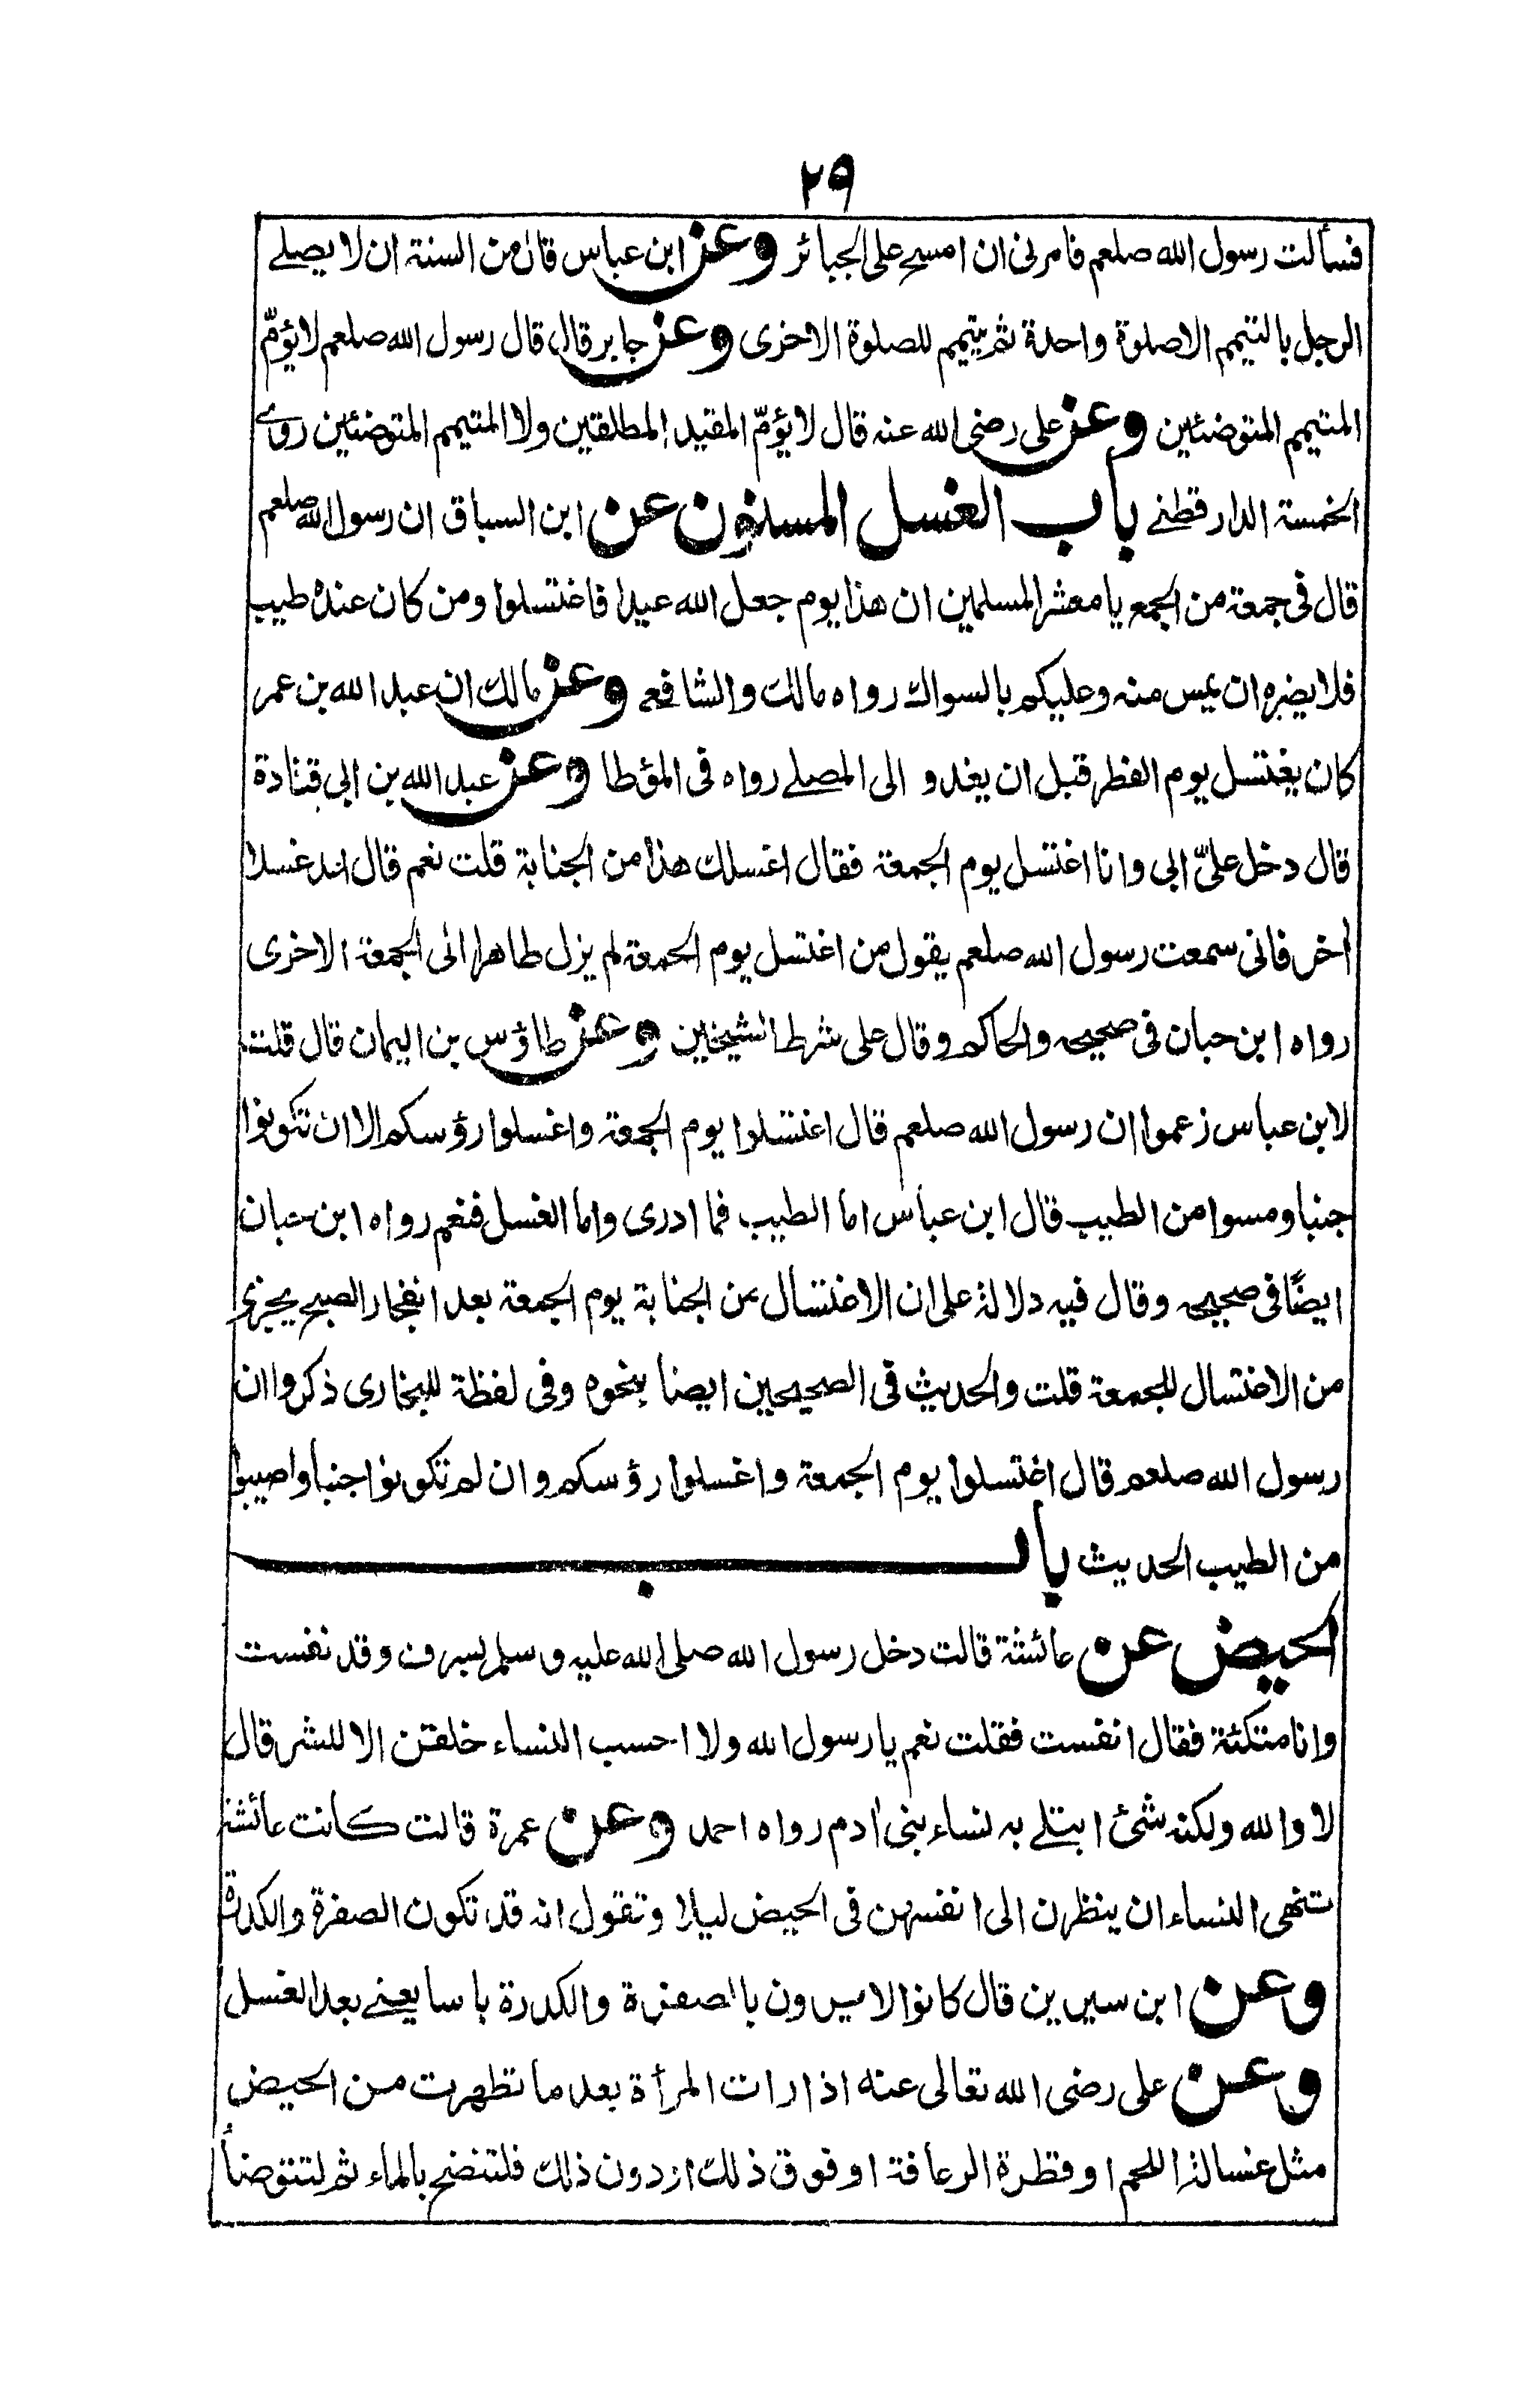 ۲۹
فسألت رسول الله صلعم فامرنی ان امسح علی الجبائر وعن ابن عباس قال من السنة ان لا یصلے
الرجل بالتیمم الا صلوة واحدة ثم یتیمم للصلوة الاخری وعن جابر قال قال رسول الله صلعم لا یؤمّ
المتیمم المتوضئین وعن علی رضی الله عنه قال لا یؤمّ المقید المطلقین ولا المتیمم المتوضئین روے
الخمسة الدارقطنے باب الغسل المسنون عن ابن السباق ان رسول الله صلعم
قال فی جمعة من الجمع یا معشر المسلمین ان هذا یوم جعل الله عیدا فاغتسلوا ومن کان عنده طیب
فلا یضره ان یمس منه وعلیکم بالسواك رواه مالك والشافعے وعن مالك ان عبد الله بن عمر
کان یغتسل یوم الفطر قبل ان یغدو الی المصلے رواه فی المؤطا وعن عبد الله بن ابی قتادة
قال دخل علیّ ابی وانا اغتسل یوم الجمعة فقال اغسلك هذا من الجنابة قلت نعم قال اعد غسلا
اخر فانی سمعت رسول الله صلعم یقول من اغتسل یوم الجمعة لم یزل طاهرا الی الجمعة الاخری
رواه ابن حبان فی صحیحه والحاکم وقال علی شرط الشیخین وعن طاؤس بن الیمان قال قلت
لابن عباس زعموا ان رسول الله صلعم قال اغتسلوا یوم الجمعة واغسلوا رؤسکم الا ان تکونوا
جنبا ومسوا من الطیب قال ابن عباس اما الطیب فما ادری واما الغسل فنعم رواه ابن حبان
ایضًا فی صحیحه وقال فیه دلالة علی ان الاغتسال من الجنابة یوم الجمعة بعد انفجار الصبح یجزی
من الاغتسال للجمعة قلت والحدیث فی الصحیحین ایضا بنحوه وفی لفظة للبخاری ذکروا ان
رسول الله صلعم قال اغتسلوا یوم الجمعة واغسلوا رؤسکم وان لم تکونوا جنبا واصیبوا
من الطیب الحدیث باب
الحیض عن عائشة قالت دخل رسول الله صلی الله علیه وسلم بسرف وقد نفست
وانا متکئة فقال انفست فقلت نعم یا رسول الله ولا احسب النساء خلقن الا للشر قال
لا والله ولکنه شئ ابتلے به نساء بنی اٰدم رواه احمد وعن عمرة قالت کانت عائشة
تنهی النساء ان ینظرن الی انفسهن فی الحیض لیلا وتقول انه قد تکون الصفرة والکدرة
وعن ابن سیرین قال کانوا لا یرون بالصفرة والکدرة باسا یعنے بعد الغسل
وعن علی رضی الله تعالی عنه اذا رات المرأة بعد ما تطهرت من الحیض
مثل غسالة اللحم او قطرة الرعافة او فوق ذلك او دون ذلك فلتنضح بالماء ثم لتتوضأ